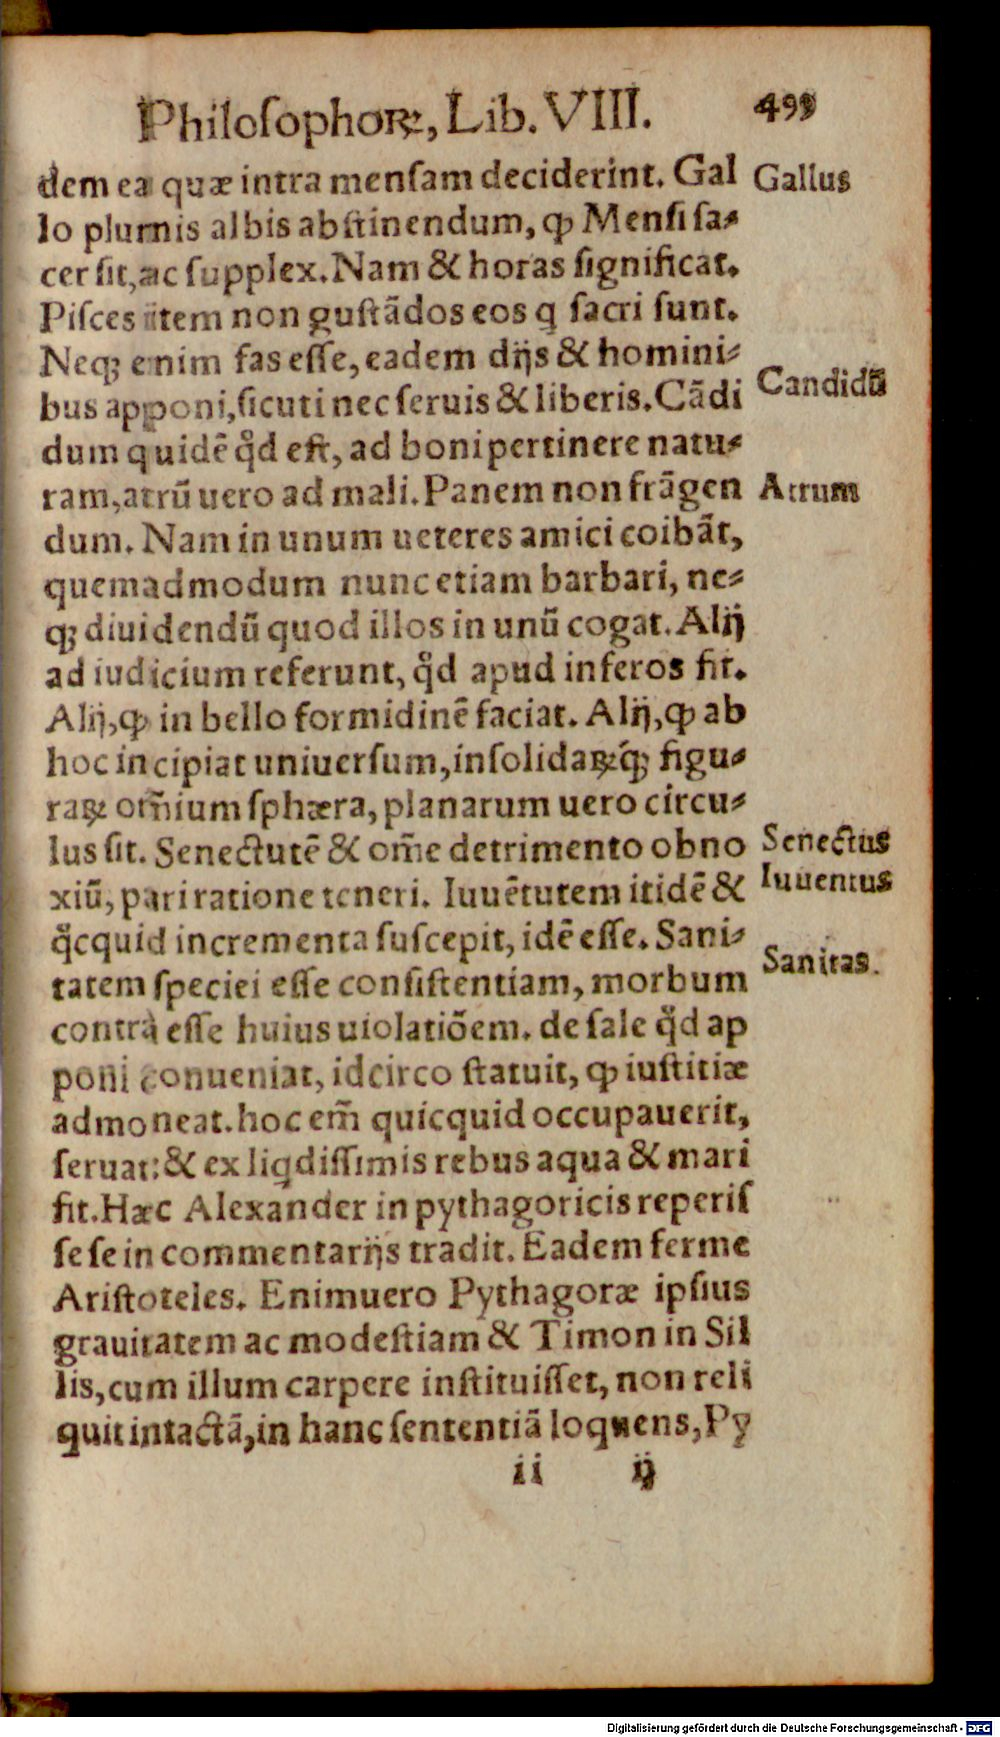 Philoſophoꝝ, Lib. VIII. 499
dem ea quæ intra menſam deciderint. Gal Gallus
lo plumis albis abſtinendum, ꝙ Menſi ſa-
cer ſit, ac ſupplex. Nam & horas ſignificat.
Piſces item non guſtãdos eos q ſacri ſunt.
Neqꝫ enim fas eſſe, eadem dijs & homini-
bus apponi, ſicuti nec ſeruis & liberis. Cãdi Candidũ
dum quidẽ qd̉ eſt, ad boni pertinere natu-
ram, atrũ uero ad mali. Panem non frãgen Atrum
dum. Nam in unum ueteres amici coibãt,
quemadmodum nunc etiam barbari, ne-
qꝫ diuidendũ quod illos in unũ cogat. Alij
ad iudicium referunt, qd̉ apud inferos fit.
Alij, ꝙ in bello formidinẽ faciat. Alij, ꝙ ab
hoc incipiat uniuerſum, inſolidaꝝq́ꝫ figu-
raꝝ om̃ium ſphæra, planarum uero circu-
lus ſit. Senectutẽ & om̃e detrimento obno Senectus
xiũ, pari ratione teneri. Iuuẽtutem itidẽ & Iuuentus
qcquid incrementa ſuſcepit, idẽ eſſe. Sani-
tatem ſpeciei eſſe conſiſtentiam, morbum Sanitas.
contrà eſſe huius uiolatiõem. de ſale qd̉ ap
poni conueniat, idcirco ſtatuit, ꝙ iuſtitiæ
admoneat. hoc em̃ quicquid occupauerit,
ſeruat: & ex liqdiſſimis rebus aqua & mari
fit. Hæc Alexander in pythagoricis reperiſ
ſe ſe in commentarijs tradit. Eadem ferme
Ariſtoteles. Enimuero Pythagoræ ipſius
grauitatem ac modeſtiam & Timon in Sil
lis, cum illum carpere inſtituiſſet, non reli
quit intactã, in hanc ſententiã loquens, Py
ii ij
Digitalisierung gefördert durch die Deutsche Forschungsgemeinschaft - DFG